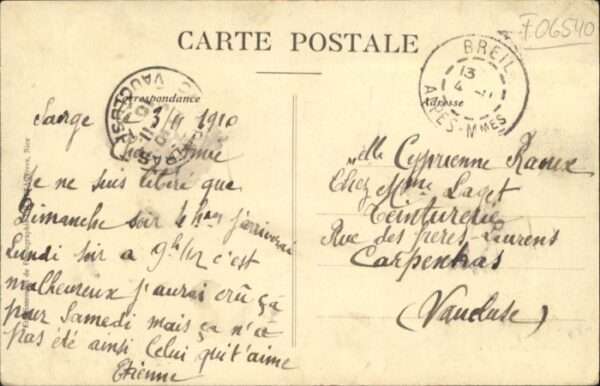 F06540
CARTE POSTALE
BREIL
13
4 -11
ALPES-MMES
VAUCLUSE
Correspondance
Adresse
3/11 1910
Je ne suis libéré que
Dimanche soir 4h j'arriverai
Lundi soir a 9h 1/2 c'est
malheureux j'aurai crû ça
pour Samedi mais ça n'a
pas été ainsi Celui qui t'aime
Etienne
Melle Cyprienne
Chez Mme Laget
Teinturerie
Rue des frères-Laurens
Carpentras
(Vaucluse)